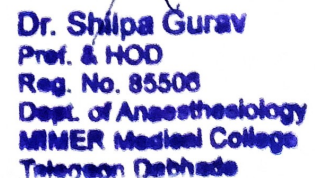 Dr. Shilpa Gurav
Prof. & HOD
Reg. No. 85506
Dept. of Anaesthesiology
MIMER Medical College
Talegaon Dabhade